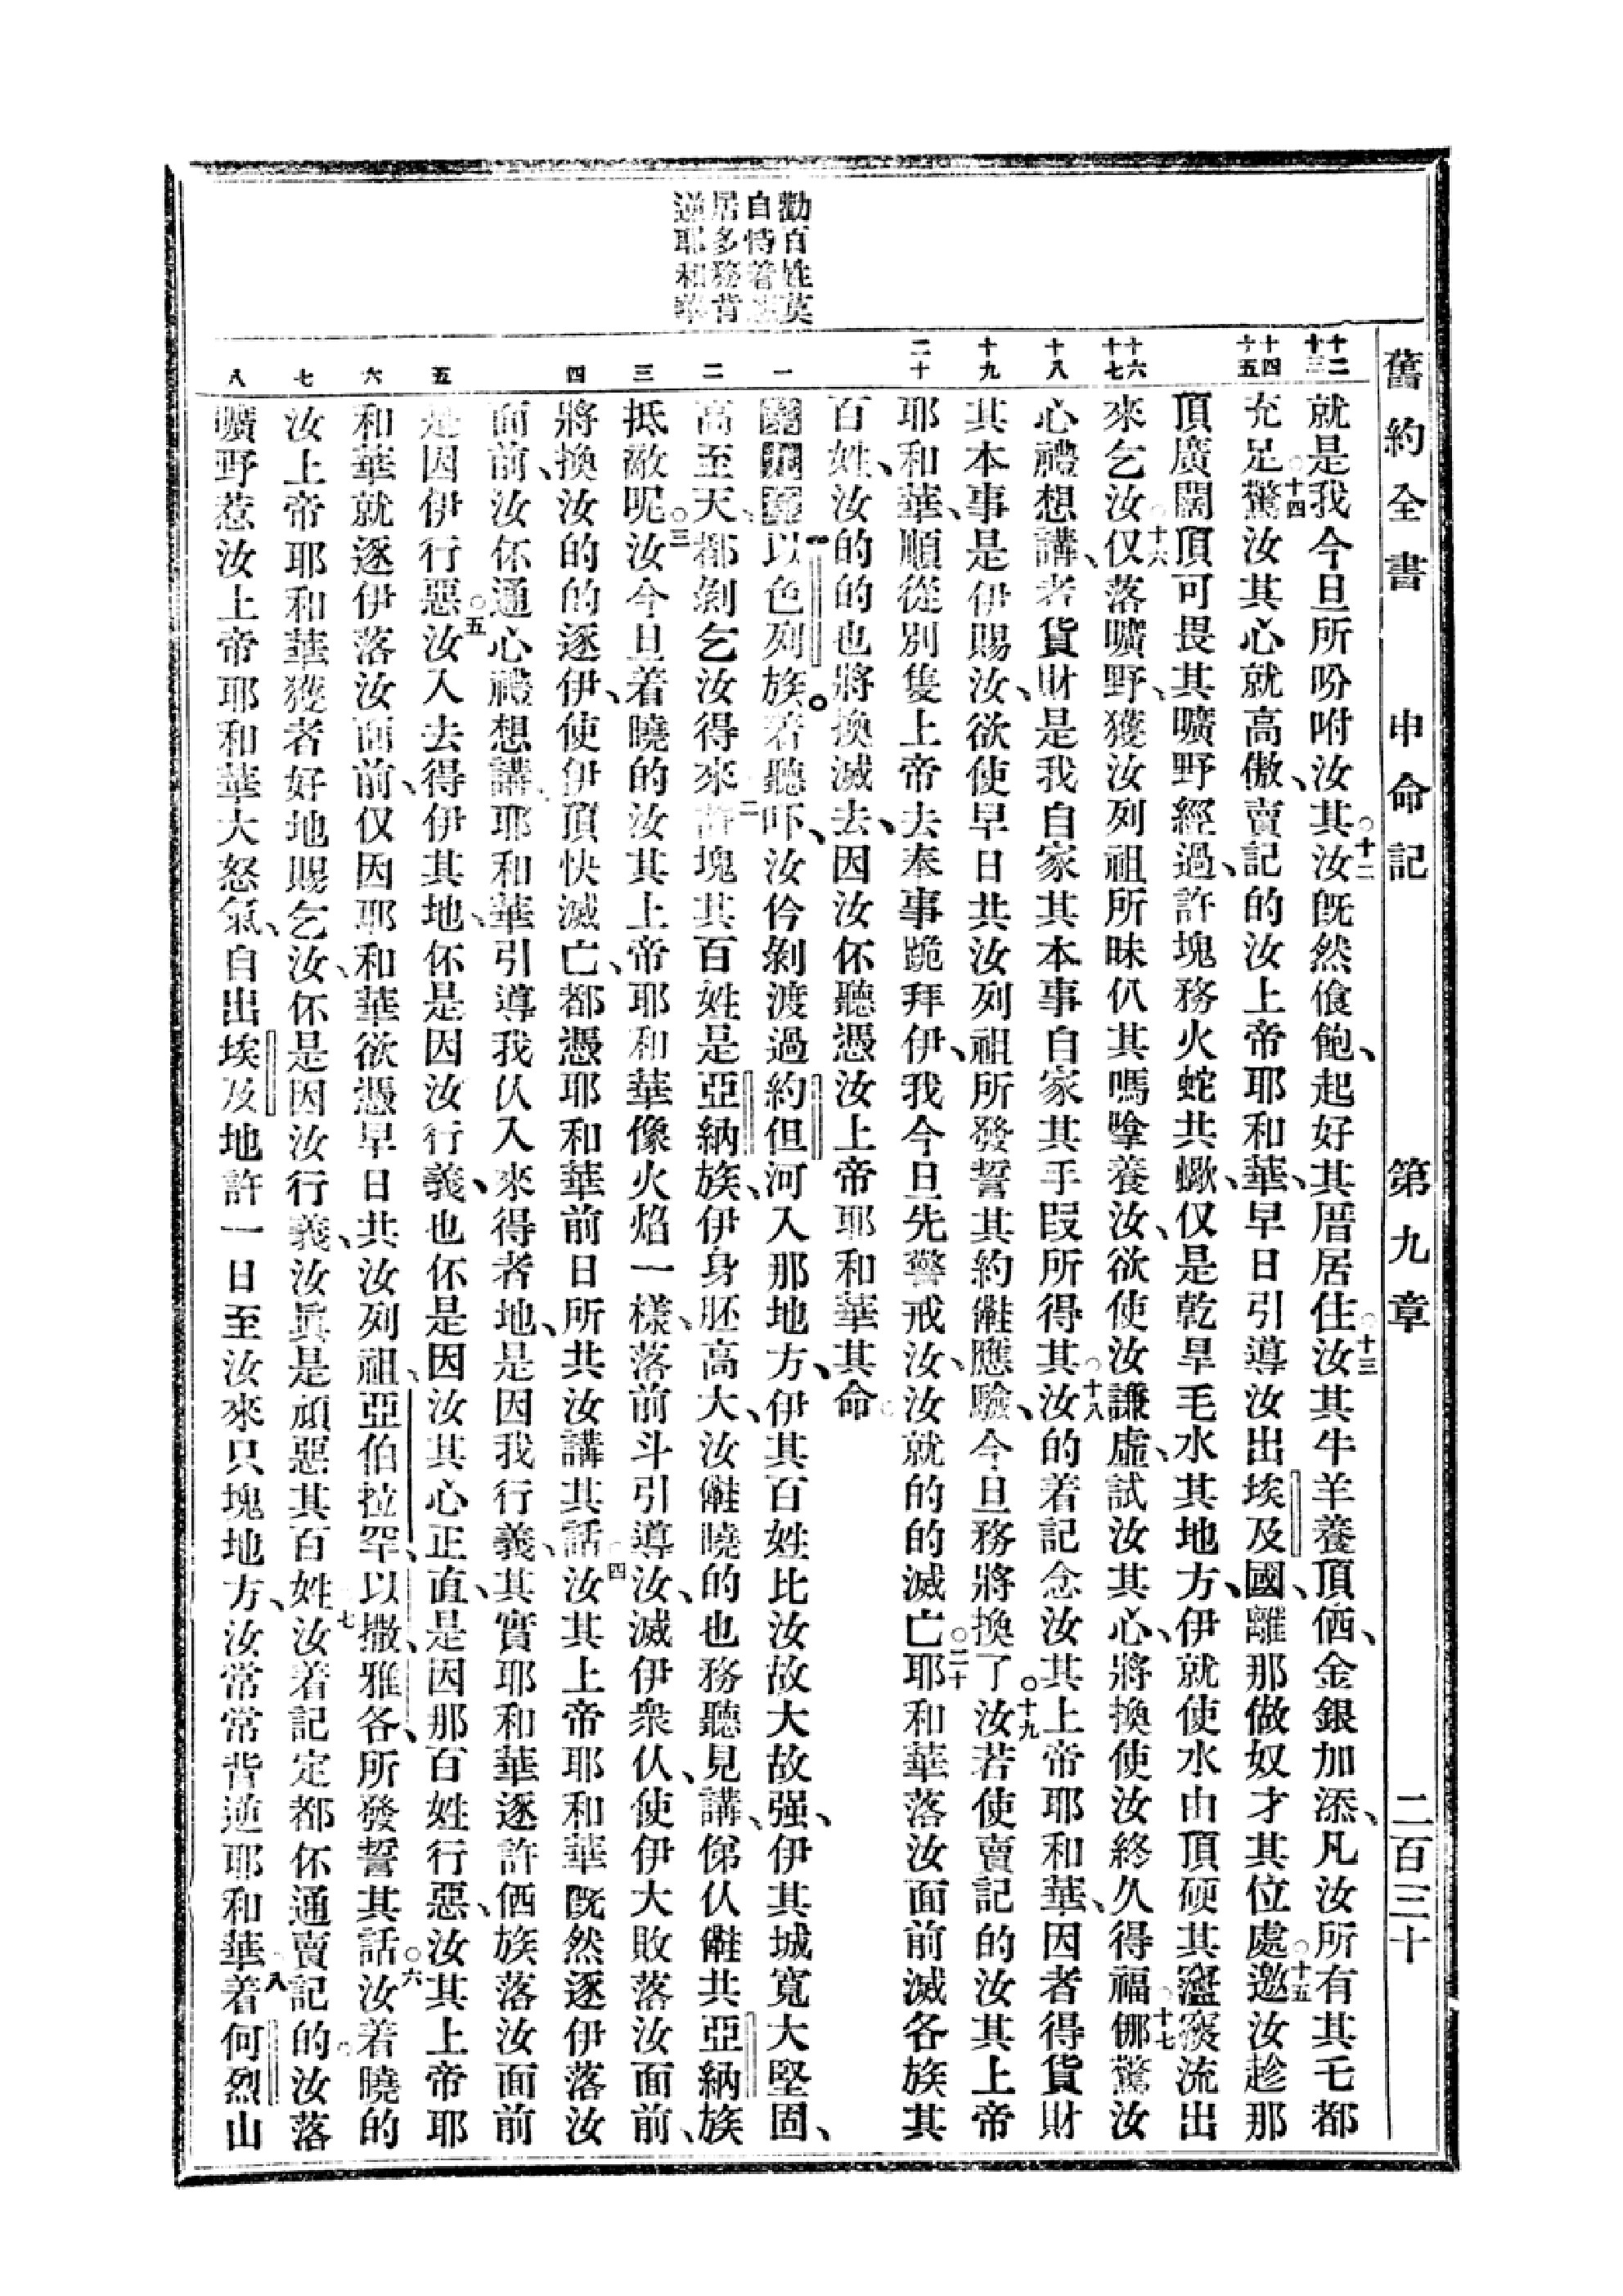 舊約全書 申命記 第九章 二百三十
勸百性莫
自恃着
居多務背
逆耶和華
十二 十三
十四 十五
十六 十七
十八
十九
二十
一
二
三
四
五
六
七
八
就是我今旦所吩咐汝其○十二汝旣然飽、起好其厝居住○十三汝其牛羊養頂、金銀加添、凡汝所有其乇都
充足○十四驚汝其心就高傲、賣記的汝上帝耶和華、早日引導汝出埃及國、離那做奴才其位處○十五邀汝趁那
頂廣闊頂可畏其曠野經過、許塊務火蛇共蠍、仅是乾旱乇水其地方、伊就使水由頂硬其流出
來乞汝○十六仅落曠野、獲汝列祖所昧仈其嗎養汝、欲使汝謙虛、試汝其心、將換使汝終久得福○十七驚汝
心禮想講、者貨財是我自家其本事自家其手段所得其○十八汝的着記念汝其上帝耶和華、因者得貨財
其本事是伊賜汝、欲使早日共汝列祖所發誓其約應驗、今旦務將換了○十九汝若使賣記的汝其上帝
耶和華、順從別隻上帝去奉事跪拜伊、我今旦先警戒汝、汝就的的滅亡○二十耶和華落汝面前滅各族其
百姓、汝的的也將換滅去、因汝伓聽憑汝上帝耶和華其命○
第九章一以色列族。若聽吓、汝仱剝渡過約但河入那地方、伊其百姓比汝故大故强、伊其城寬大堅固、
高至天、○二都剝乞汝得來許塊其百姓是亞納族、伊身胚高大、汝曉的也務聽見講、仈共亞納族
抵敵呢○三汝今旦着曉的汝其上帝耶和華像火焰一樣、落前斗引導汝、滅伊衆仈、使伊大敗落汝面前、
將換汝的的逐伊、使伊頂快滅亡、都憑耶和華前日所共汝講其話○四汝其上帝耶和華旣然逐伊落汝
面前、汝伓通心禮想講、耶和華引導我仈入來得者地、是因我行義、其實耶和華逐許族落汝面前
是因伊行惡○五汝入去得伊其地、伓是因汝行義、也伓是因汝其心正直、是因那百姓行惡、汝其上帝耶
和華就逐伊落汝面前、仅因耶和華欲憑早日共汝列祖、亞伯拉罕、以撒、雅各、所發誓其話○六汝着曉的
汝上帝耶和華獲者好地賜乞汝、伓是因汝行義、汝眞是頑惡其百姓○七汝着記定都伓通賣記的汝落
曠野惹汝上帝耶和華大怒氣、自出埃及地許一日至汝來只塊地方、汝常常背逆耶和華○八着何烈山